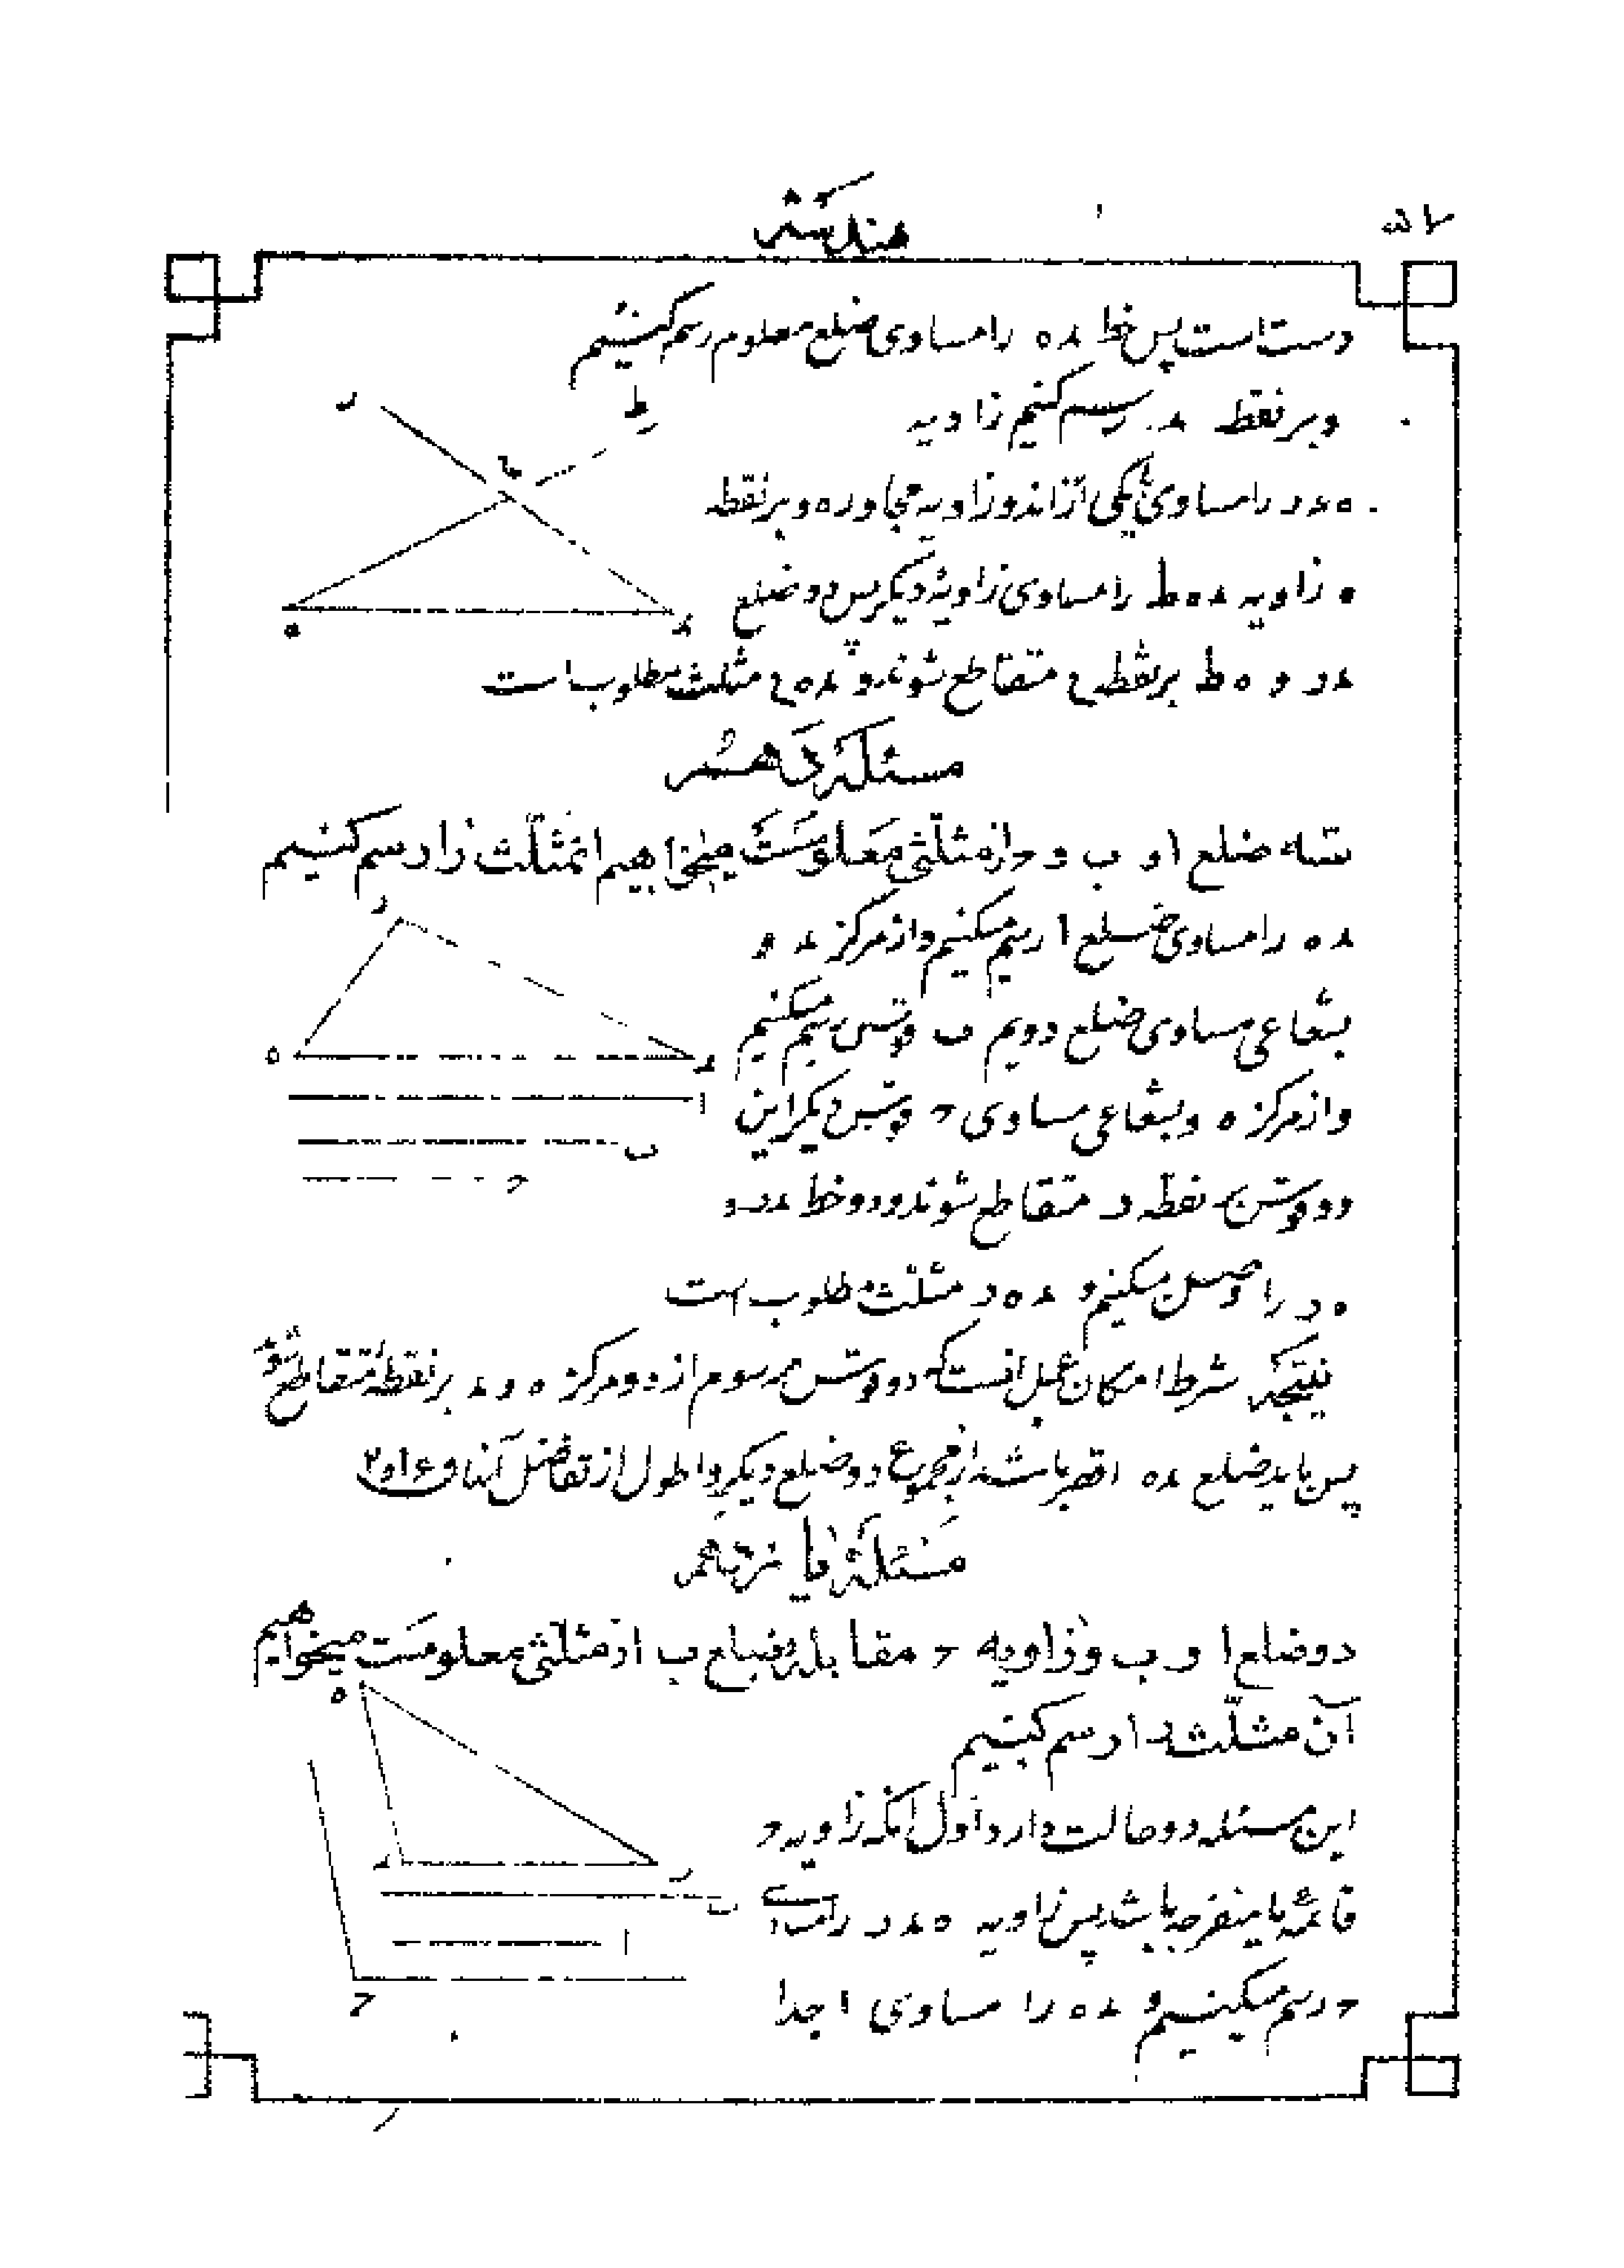 هندسه
دست است پس خط ده را مساوی ضلع معلوم رسم کنیم
و بر نقطه د رسم کنیم زاویه
ه د ر را مساوی یکی از اندو زاویه مجاوره و بر نقطه
ه زاویه د ه ط را مساوی زاویهٔ دیگر پس دو ضلع
د ر و ه ط بر نقطه ع متقاطع شوند و د ه ع مثلث مطلوب است
مسئلهٔ دهم
سه ضلع ا و ب و ح از مثلثی معلومست میخواهیم انمثلّث را رسم کنیم
د ه را مساوی ضلع ا رسم میکنیم و از مرکز د و
بشعاعی مساوی ضلع دویم ب قوسی رسم میکنیم
و از مرکز ه و بشعاعی مساوی ح قوسی دیگر این
دو قوس بر نقطه ر متقاطع شوند و دو خط د ر و
ه ر را وصل میکنیم و د ه ر مثلّث مطلوب است
نتیجه شرط امکان عمل انست که دو قوس مرسوم از دو مرکز ه و د بر نقطهٔ متقاطع شوند
پس باید ضلع د ه اقصر باشد از مجموع دو ضلع دیگر و اطول از تفاضل آنها
مسئلهٔ یازدهم
دو ضلع ا و ب و زاویه ح مقابلهٔ ضلع ب از مثلّثی معلومست میخواهیم
آن مثلّث را رسم کنیم
این مسئله دو حالت دارد اول انکه زاویه
قائمه یا منفرجه باشد پس زاویه ه د ر را مساوی
ح رسم میکنیم و د ه را مساوی ا جدا